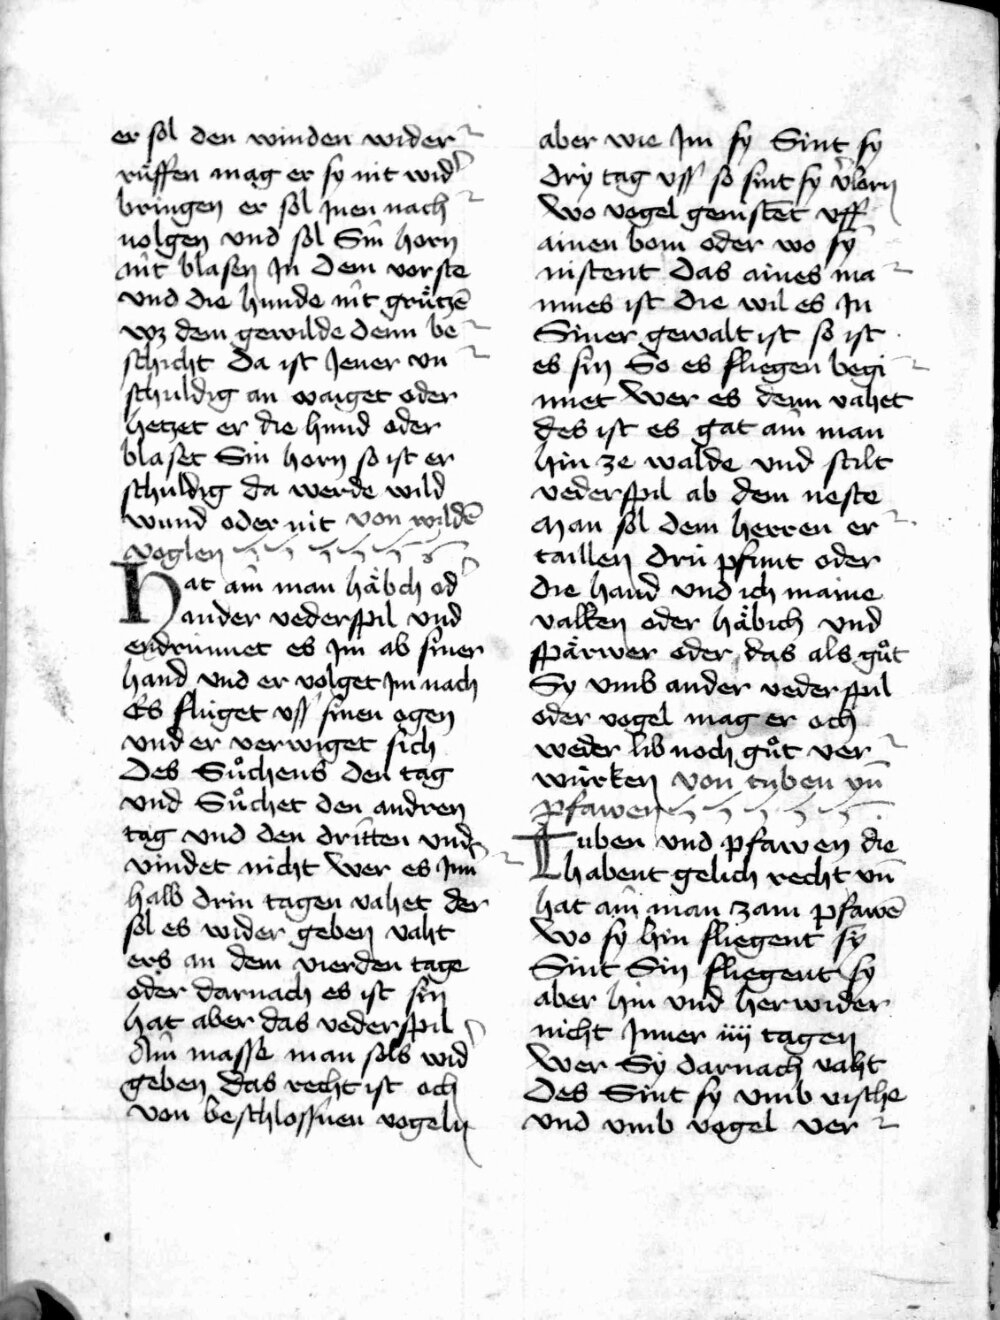 er sol den winden wider
rüffen mag er sy nit wid
bringen er sol Inen nach
uolgen vnd sol Sin horn
nit blasen In dem vorste
vnd die hunde nit grůtzē
vtz dem gewilde denn be
schicht da ist Jener vn
schuldig an waiget oder
hetzet er die hund oder
blaset Sin horn so ist er
schuldig da werde wild
wund oder nit von wildē
voglen
Hat ain man häbch od
ander vederspil vnd
endrinnet es Im ab siner
hand vnd er volget Im nach
Es flüget vss sinen ogen
vnd er verwiget sich
Des Sůchens den tag
vnd Sůchet den andren
tag vnd den dritten vnd
vindet nicht wer es Inn
halb drin tagen vahet der
sol es wider geben vaht
ers an dem vierden tage
oder darnach es ist sin
hat aber das vederspil
Ain masse man sols wid
geben das recht ist och
von beschlossnen vogeln
aber wie Im sy Sint sy
dry tag vss so sint sy v̓lorn
Wo vogel genistet vff
ainen bom oder wo sy
nistent das aines ma
nnes ist die wil es In
Siner gewalt ist so ist
es sin So es fliegen begi
nnet wer es denn vahet
des ist es gat ain man
hin ze walde vnd stilt
vederspil ab dem neste
Man sol dem herren er
taillen drü pfunt oder
die hand vnd ich maine
valken oder häbich vnd
spärwer oder das als gůt
Sy vmb ander vederspil
oder vogel mag er och
weder lib noch gůt ver
würken von tuben vn̄
pfawen
Tuben vnd pfawen die
habent gelich recht vn̄
hat ain man zam pfawē
wo sy hin fliegent sy
Sint Sin fliegent sy
aber hin vnd her wider
nicht Inner iiij tagen
wer Sy darnach vaht
Des Sint sy vmb vische
vnd vmb vogel ver